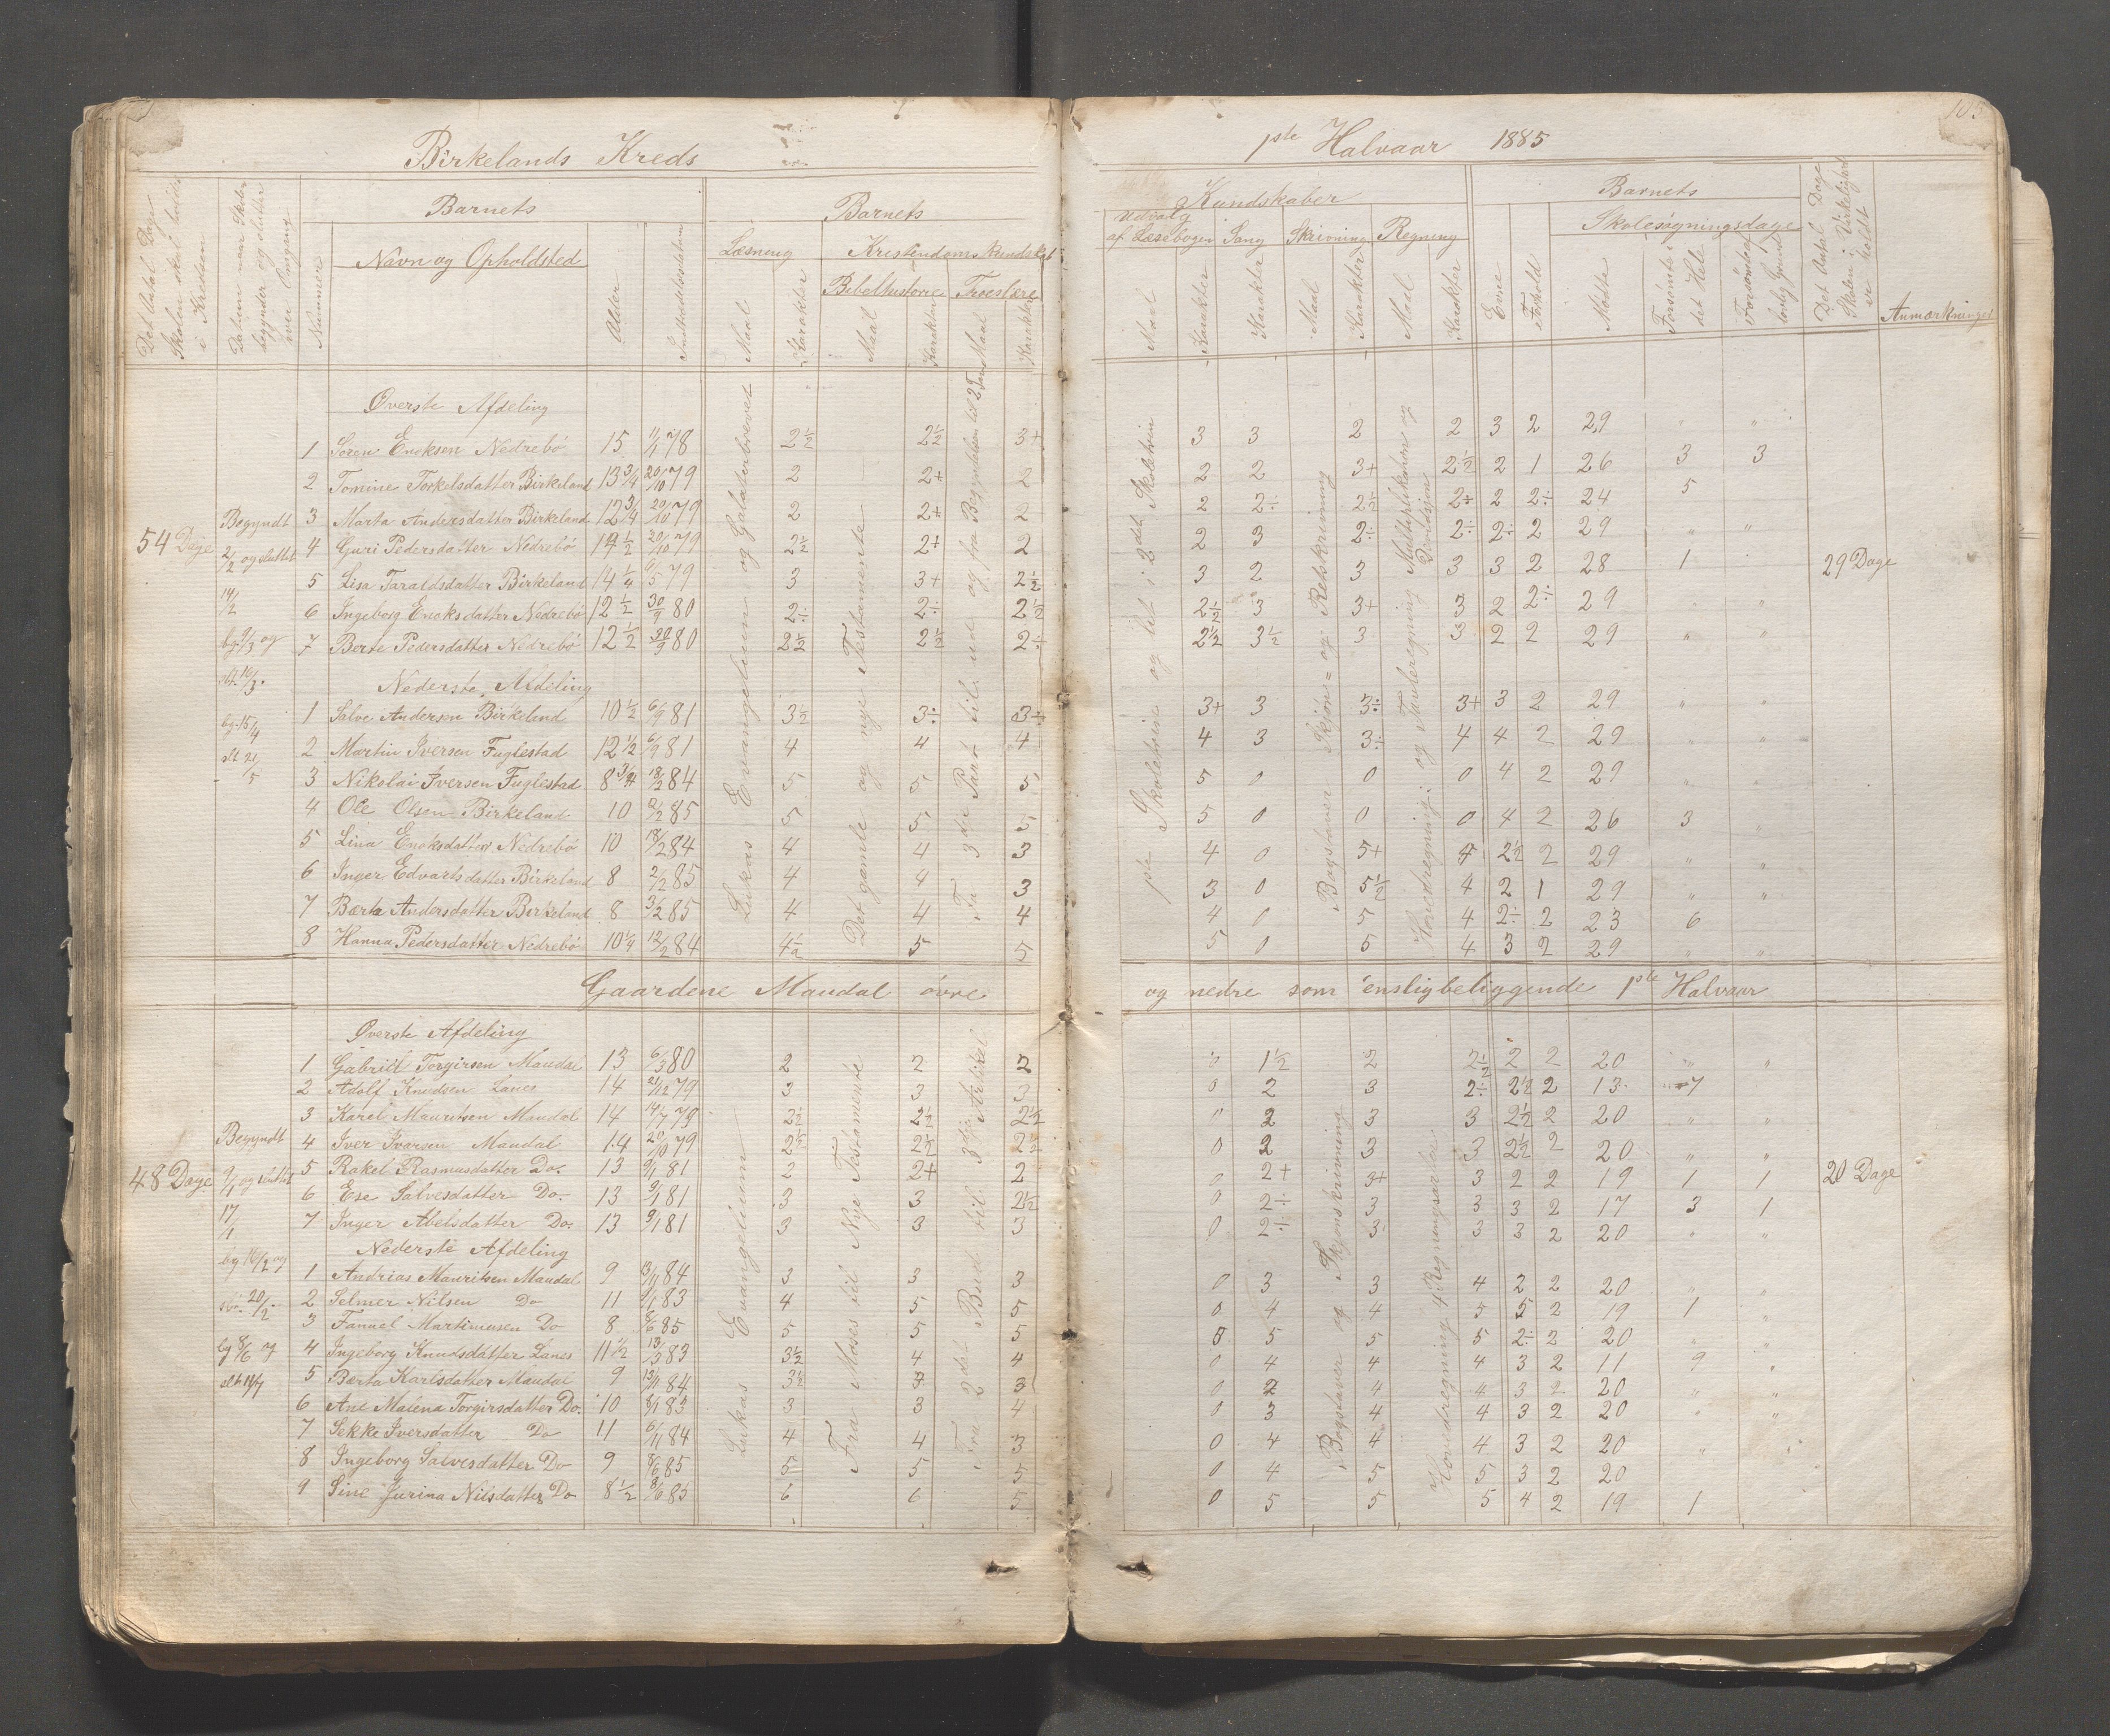 Birkelands Kreds
1ste Halvaar 1885
Det Antal Dage Skolen skal holdes i Kredsen
Datum naar Skolen begynder og slutter hver Omgang
Nummer
Barnets
Navn og Opholdsted
Alder
Indtrædelsesdatum
Barnets
Læsning
Maal
Karakter
Kristendomskundskab
Bibelhistorie
Maal
Karakter
Troeslære
Maal
Karakter
Kundskaber
Udvalg af Læsebogen
Maal
Karakter
Sang
Karakter
Skrivning
Maal
Karakter
Regning
Maal
Karakter
Barnets
Evne
Forhold
Skolesøgningsdage
Mødte
Forsømte i det Hele
Forsømte af lovlig Grund
Det Antal Dage Skolen i Virkelighed er holdt
Anmærkninger
54 Dage
Begyndt 2/2 og sluttet 14/2
bg. 9/3 og slt. 16/3.
bg. 15/4 slt 21/5
Lukas Evangelium og Galaterbrevet
Det gamle og nye Testamente
Fra 3die Part til ud og fra Begyndelsen til 2
1ste Skoletrin og lit i 2det Skoletrin
Bogstaver Skjøn= og Retskrivning
Hovedregning og Tavleregning Multiplikation og Divisjon
29 Dage
Øverste Afdeling
1 Søren Enoksen Nedrebø 15 11/1 78 2½ 2½ 3+ 3 3 2 2 3 2 29 " "
2 Tomine Torkelsdatter Birkeland 13¾ 20/10 79 2 2+ 2 2 2 3+ 2½ 2 1 26 3 3
3 Marta Andersdatter Birkeland 12¾ 20/10 79 2 2+ 2 2 2÷ 2½ 2÷ 2 2÷ 24 5
4 Guri Pedersdatter Nedrebø 14½ 20/10 79 2½ 2+ 2 2 3 2÷ 2÷ 2÷ 2 29 " "
5 Lisa Taraldsdatter Birkeland 14¼ 6/5 79 3 3+ 2½ 3 2 3 3 3 2 28 1
6 Ingeborg Enoksdatter Nedrebø 12½ 30/9 80 2÷ 2÷ 2½ 2½ 3 3+ 3 2 2÷ 29 " "
7 Berte Pedersdatter Nedrebø 12½ 30/9 80 2½ 2½ 2÷ 2½ 3½ 3 3 2 2 29 " "
Nederste Afdeling
1 Salve Andersen Birkeland 10½ 6/9 81 3½ 3÷ 3÷ 3+ 3 3÷ 3+ 3 2 29 " "
2 Martin Iversen Fuglestad 12½ 6/9 81 4 4 4 4 3 3÷ 4 4 2 29 " "
3 Nikolai Iversen Fuglestad 8¾ 18/2 84 5 5 5 5 0 0 0 4 2 29 " "
4 Ole Olsen Birkeland 10 2/2 85 5 5 5 5 0 0 0 4 2 26 3 "
5 Lina Enoksdatter Nedrebø 10 18/2 84 4 4 3 4 0 5+ 4 2½ 2 29 " "
6 Inger Edvartsdatter Birkeland 8 2/2 85 4 4 3 3 0 5½ 4 2 1 29 " "
7 Bærta Andersdatter Birkeland 8 3/2 85 4 4 4 4 0 5 4 2÷ 2 23 6
8 Hanna Pedersdatter Nedrebø 10¼ 12/2 84 4½ 5 5 5 0 5 4 3 2 29 " "
Gaardene Maudal øvre og nedre som ensligbeliggende 1ste Halvaar
48 Dage
Begyndt 9/1 og sluttet 17/1
bg 16/2 og slu. 20/2.
bg 8/6 og slt 11/7
Lukas Evangelium
Fra Moses til Nye Testamente
Fra 2det Bud til 3die Artikel
Bogstaver og Skjønskrivning
Hovedregning 4 Regningsarter
20 Dage
Øverste Afdeling
1 Gabriel Torgirsen Maudal 13 6/3 80 2 2 2 0 1½ 2 2½ 2 2 20 " "
2 Adolf Knudsen Lanes 14 21/12 79 3 3 3 0 2 3 2÷ 2½ 2 13 7
3 Karel Mauritsen Maudal 14 14/7 79 2½ 2½ 2½ " 2 3 3 2½ 2 20 " "
4 Iver Ivarsen Maudal 14 20/10 79 2½ 2½ 2½ 0 2 3 3 2½ 2 20 " "
5 Rakel Rasmusdatter Do. 13 9/1 81 2 2+ 2 0 2+ 3+ 3 2 2 19 1 1
6 Ese Salvesdatter Do. 13 9/1 81 3 3 2½ 0 2÷ 3 3 3 2 17 3 1
7 Inger Abelsdatter Do. 13 9/1 81 3 3 3 0 2÷ 3 3 3 2 20 " "
Nederste Afdeling
1 Andrias Mauritsen Maudal 9 13/11 84 3 3 3 0 3 3 4 2 2 20 " "
2 Selmer Nilsen Do 11 9/1 83 4 5 5 0 4 4 5 5 2 19 1 "
3 Fanuel Martinusen Do 8 8/6 85 5 5 5 5 5 5 5 2÷ 2 20 " "
4 Ingeborg Knudsdatter Lanes 11½ 13/3 83 3½ 4 4 0 4 4 4 3 2 11 9 "
5 Bærta Karlsdatter Maudal 9 13/11 84 3½ 3 3 0 2 4 4 3 2 20 " "
6 Ane Malena Torgirsdatter Do. 10 9/1 83 3 3 4 0 3 4 4 3 2 20 " "
7 Sekke Iversdatter Do 11 6/11 84 4 4 3 0 4 4 4 3 2 20 " "
8 Ingeborg Salvesdatter Do 9 8/6 85 5 5 5 0 4 5 5 3 2 20
9 Sine Jurina Nilsdatter Do 8½ 8/6 85 6 6 5 0 5 5 5 4 2 19 1